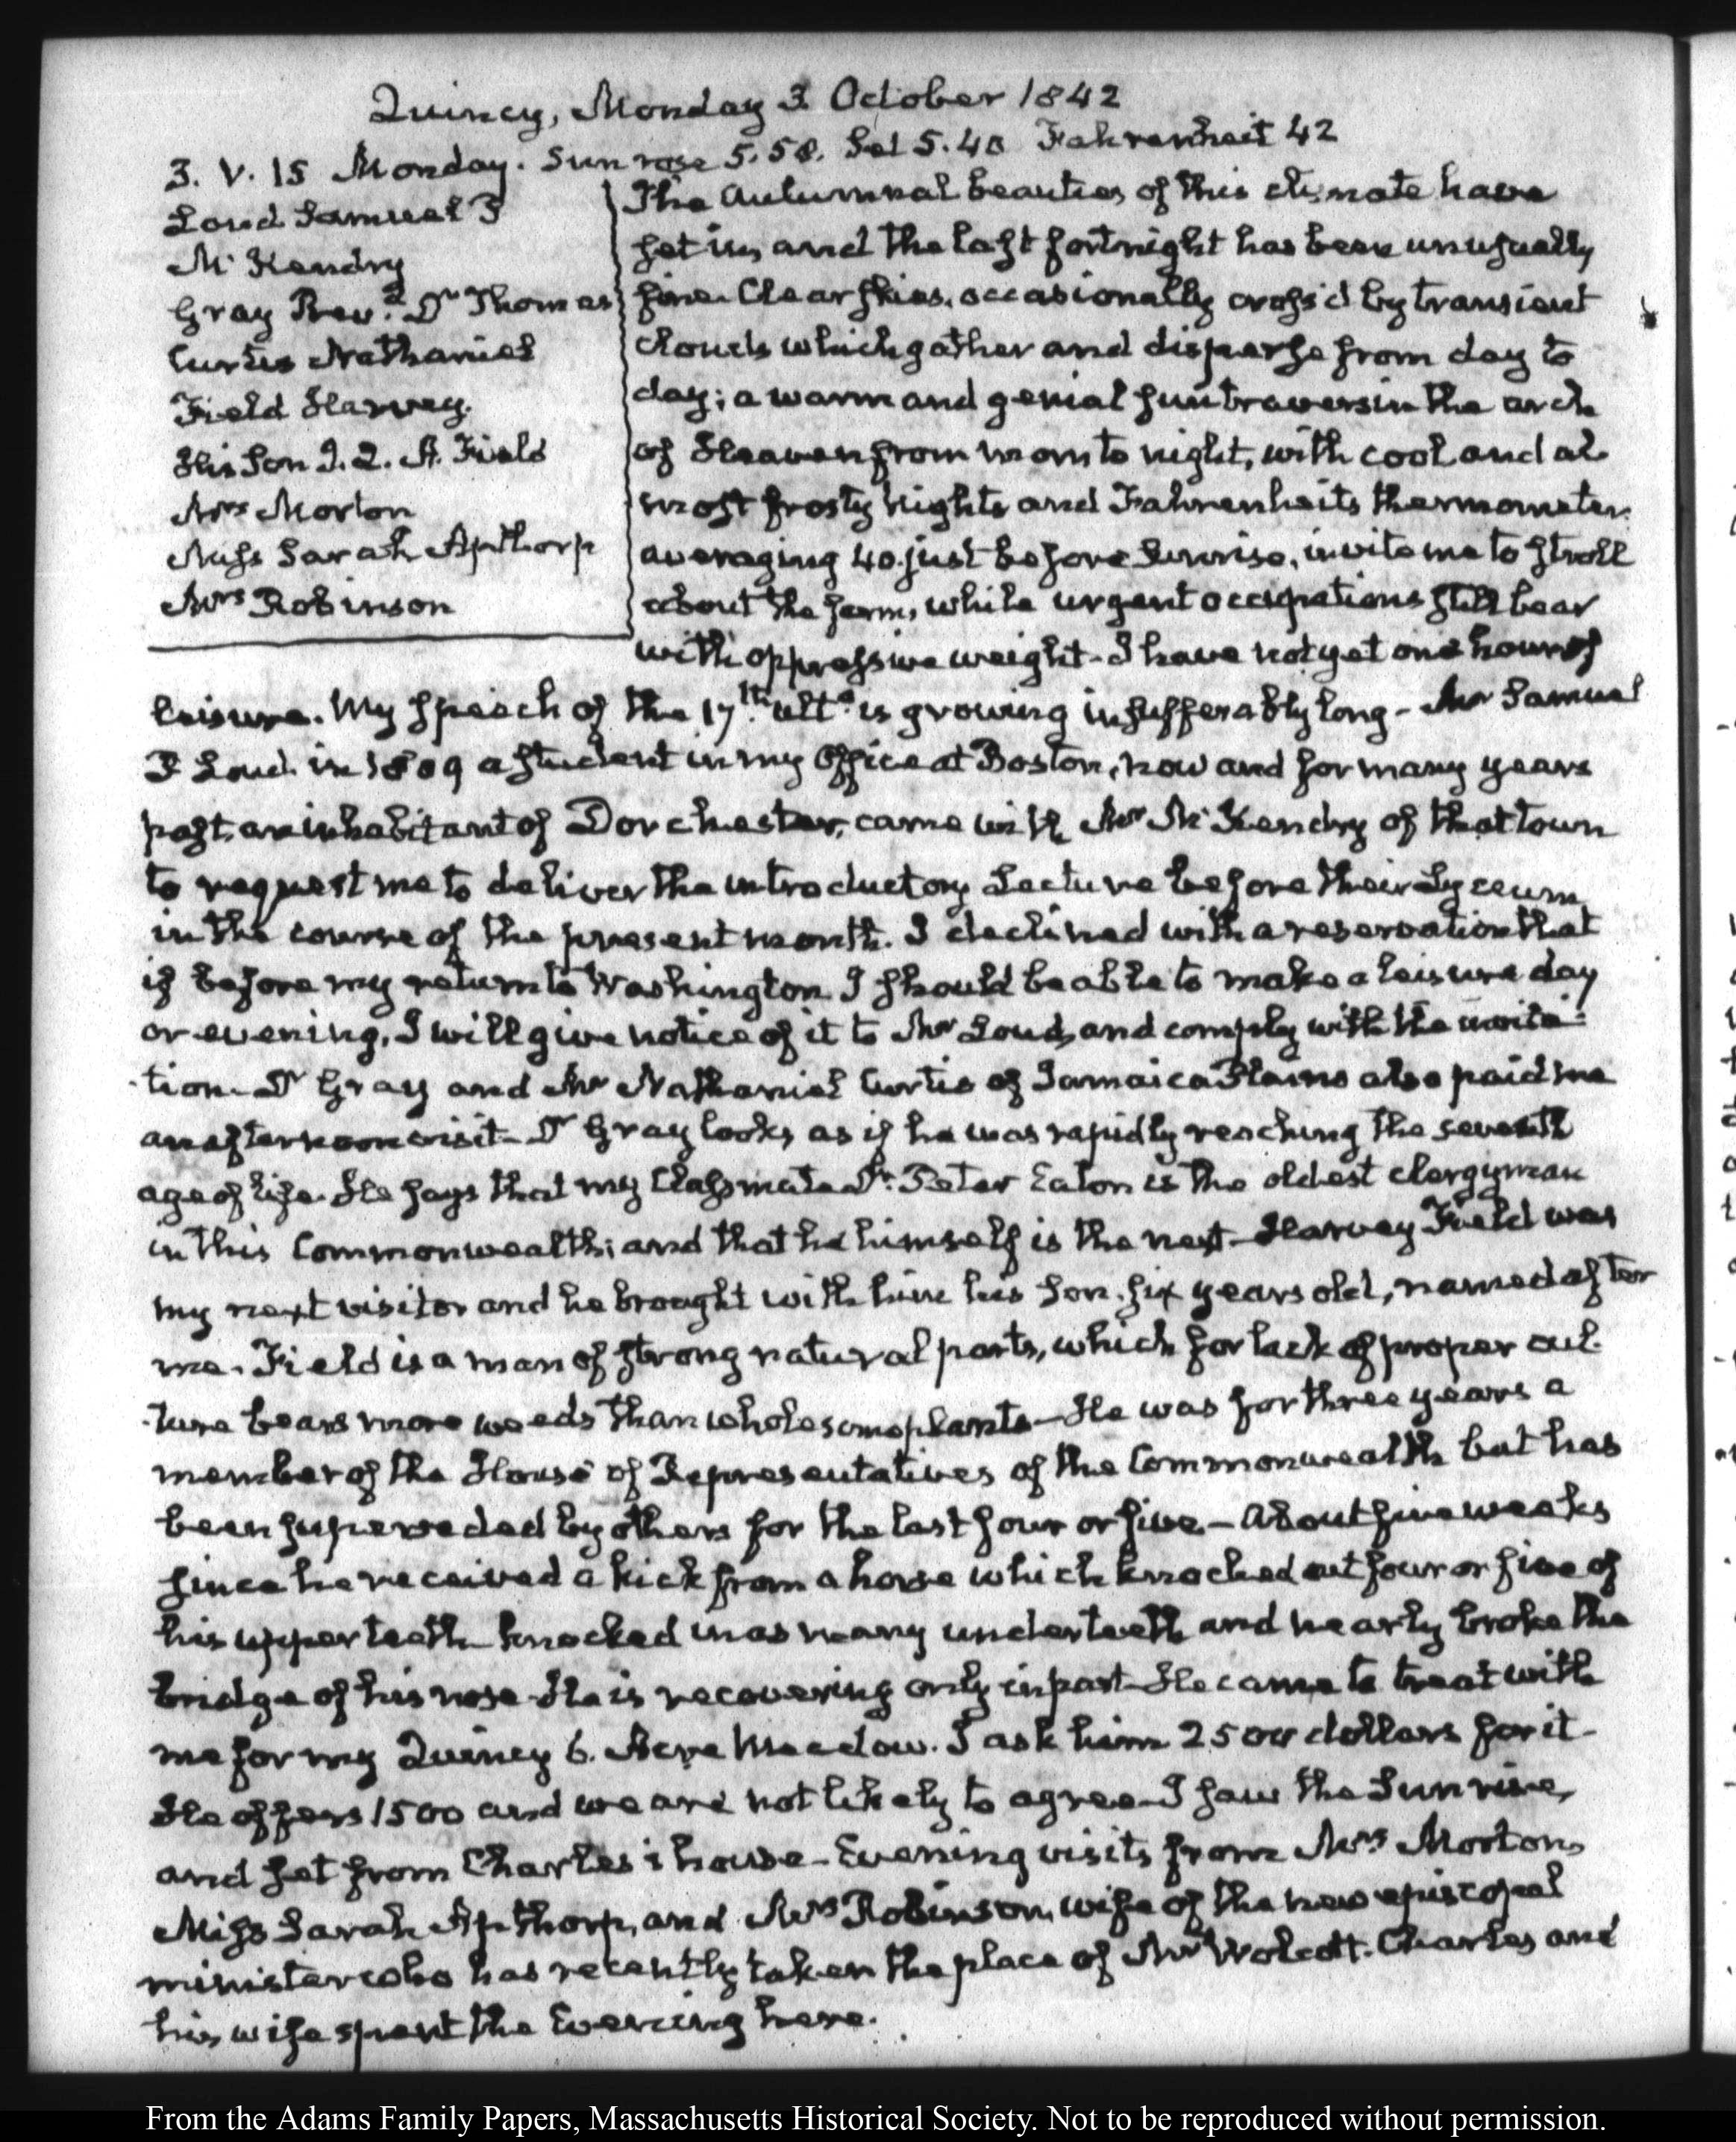 Quincy, Monday 3 October 1842
3. V. 15 Monday. Sun rose 5.58. Set 5.40 Fahrenheit 42
Loud Samuel P
Mc Kendry
Gray Revd. Dr Thomas
Curtis Nathaniel
Field Harvey.
His Son J. Q. A. Field
Mrs Morton
Miss Sarah Apthorp
Mrs Robinson
The Autumnal beauties of this climate have
set in, and the last fortnight has been unusually
fine. Clear skies, occasionally cross'd by transient
clouds which gather and disperse from day to
day; a warm and genial sun traversin the arch
of Heaven from morn to night, with cool and al-
most frosty nights and Fahrenheits thermometer
averaging 40. just before Sunrise, invite me to stroll
about the farm, while urgent occupations still bear
with oppressive weight- I have not yet one hour of
leisure. My speech of the 17th. ulto. is growing insufferably long- Mr Samuel
P Loud in 1809 a student in my Office at Boston, now and for many years
past, an inhabitant of Dorchester, came with Mr Mc Kendry of that town
to request me to deliver the introductory Lecture before their Lyceum
in the course of the present month. I declined with a reservation that
if before my return to Washington I should be able to make a leisure day
or evening, I will give notice of it to Mr Loud, and comply with the invita-
tion- Dr Gray and Mr Nathaniel Curtis of Jamaica Plains also paid me
an afternoon visit- Dr Gray looks, as if he was rapidly reaching the seventh
age of life. He says that my Classmate Dr. Peter Eaton is the oldest clergyman
in this Commonwealth; and that he himself is the next- Harvey Field was
my next visitor and he brought with him his son. six years old, named after
me. Field is a man of strong natural parts, which for lack of proper cul-
ture bears more weeds than wholesome plants- He was for three years a
member of the House of Representatives of the Commonwealth but has
been superseded by others for the last four or five.- About five weeks
since he received a kick from a horse which knocked out four or five of
his upper teeth- knocked in as many under teeth and nearly broke the
bridge of his nose- He is recovering only in part- He came to treat with
me for my Quincy 6. Acre Meadow. I ask him 2500 dollars for it-
He offers 1500 and we are not likely to agree- I saw the Sun rise,
and set from Charles's house- Evening visits from Mrs Morton,
Miss Sarah Apthorp, and Mrs Robinson, wife of the new episcopal
minister who has recently taken the place of Mr Wolcott. Charles and
his wife spent the Evening here.
From the Adams Family Papers, Massachusetts Historical Society. Not to be reproduced without permission.